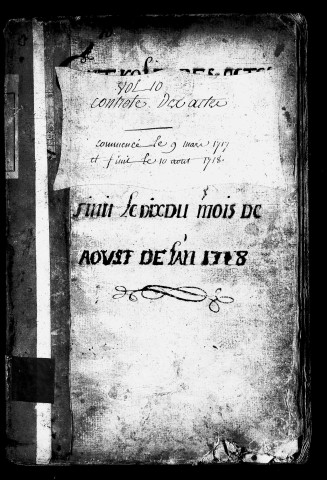 VOL 10
controle Des actes
commencé le 9 mars 1717
et finie le 10 aout 1718
finit Le dix DU mois DE
AOUST DE l'an 1718